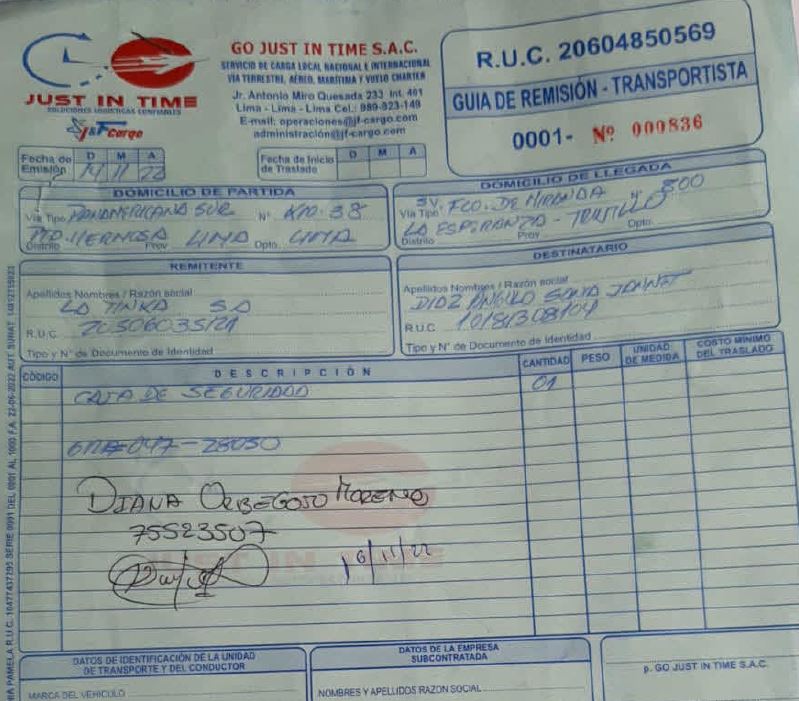 JUST IN TIME
SOLUCIONES LOGISTICAS CONFIABLES
J&F Cargo
GO JUST IN TIME S.A.C.
SERVICIO DE CARGA LOCAL NACIONAL E INTERNACIONAL
VIA TERRESTRE, AÉREO, MARÍTIMA Y VUELO CHARTER
Jr. Antonio Miro Quesada 233 Int. 401
Lima - Lima - Lima Cel.: 989-823-149
E-mail: operaciones@jf-cargo.com
administración@jf-cargo.com
R.U.C. 20604850569
GUIA DE REMISIÓN - TRANSPORTISTA
0001- Nº 000836
Fecha de Emisión D M A
14 11 22
Fecha de Inicio de Traslado D M A
DOMICILIO DE PARTIDA
Vía Tipo PANAMERICANA SUR Nº KM. 38
PTO. HERMOSA LIMA LIMA
Distrito Prov. Dpto.
DOMICILIO DE LLEGADA
Vía Tipo AV. FCO. DE MIRANDA Nº 800
LA ESPERANZA - TRUJILLO
Distrito Prov. Dpto.
REMITENTE
Apellidos Nombres / Razón social
LA TINKA SA
R.U.C. 20506035121
Tipo y N° de Documento de Identidad
DESTINATARIO
Apellidos Nombres / Razón social
DIAZ ANGULO JANNET
R.U.C. 10181308104
Tipo y N° de Documento de Identidad
CÓDIGO DESCRIPCIÓN CANTIDAD PESO UNIDAD DE MEDIDA COSTO MÍNIMO DEL TRASLADO
CAJA DE SEGURIDAD 01
047-28050
DIANA ORBEGOSO MORENO
75523507
16/11/22
DATOS DE IDENTIFICACIÓN DE LA UNIDAD DE TRANSPORTE Y DEL CONDUCTOR
MARCA DEL VEHICULO
DATOS DE LA EMPRESA SUBCONTRATADA
NOMBRES Y APELLIDOS RAZON SOCIAL
p. GO JUST IN TIME S.A.C.
PAMELA R.U.C. 10477437295 SERIE 0001 DEL 0001 AL 1000 F.A. 22-06-2022 AUT. SUNAT